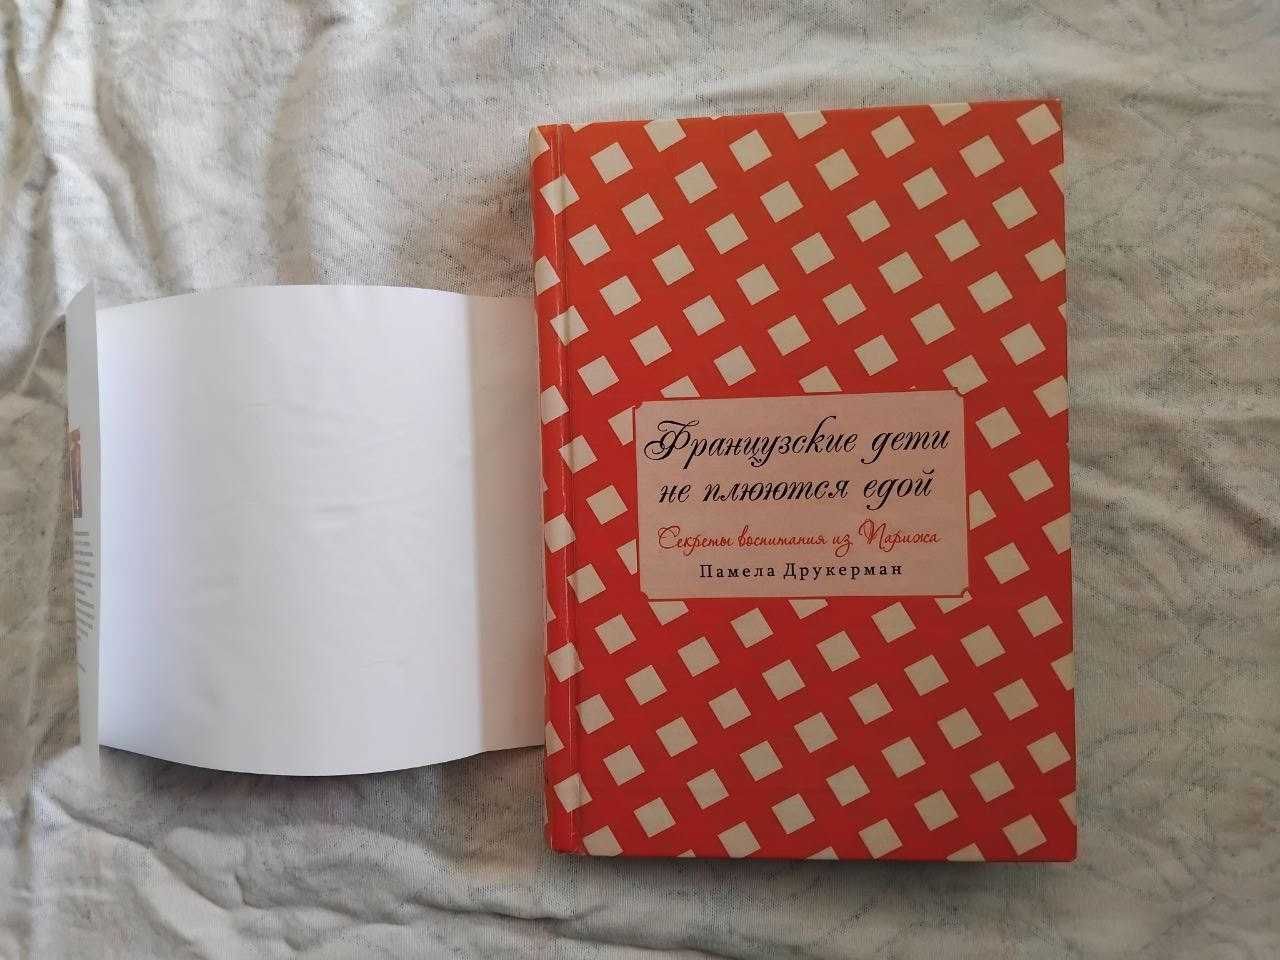 Французские дети
не плюются едой
Секреты воспитания из Парижа
Памела Друкерман